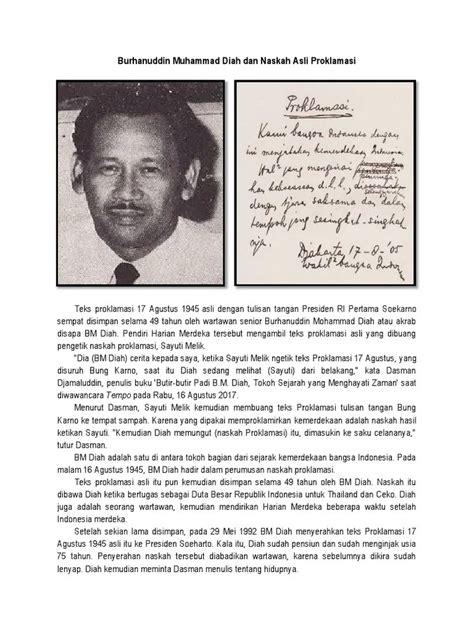 Burhanuddin Muhammad Diah dan Naskah Asli Proklamasi
Proklamasi.
Kami bangsa Indonesia dengan
ini menjatakan kemerdekaan Indonesia.
Hal² yang mengenai
kekoeasaan d.l.l.,
dengan tjara saksama dan dalam
tempoh yang sesingkat-singkat
nja.
Djakarta 17-8-'05
Wakil² bangsa Indon.
Teks proklamasi 17 Agustus 1945 asli dengan tulisan tangan Presiden RI Pertama Soekarno
sempat disimpan selama 49 tahun oleh wartawan senior Burhanuddin Mohammad Diah atau akrab
disapa BM Diah. Pendiri Harian Merdeka tersebut mengambil teks proklamasi asli yang dibuang
pengetik naskah proklamasi, Sayuti Melik.
"Dia (BM Diah) cerita kepada saya, ketika Sayuti Melik ngetik teks Proklamasi 17 Agustus, yang
disuruh Bung Karno, saat itu Diah sedang melihat (Sayuti) dari belakang," kata Dasman
Djamaluddin, penulis buku 'Butir-butir Padi B.M. Diah, Tokoh Sejarah yang Menghayati Zaman' saat
diwawancara Tempo pada Rabu, 16 Agustus 2017.
Menurut Dasman, Sayuti Melik kemudian membuang teks Proklamasi tulisan tangan Bung
Karno ke tempat sampah. Karena yang dipakai memproklamirkan kemerdekaan adalah naskah hasil
ketikan Sayuti. "Kemudian Diah memungut (naskah Proklamasi) itu, dimasukin ke saku celananya,"
tutur Dasman.
BM Diah adalah satu di antara tokoh bagian dari sejarah kemerdekaan bangsa Indonesia. Pada
malam 16 Agustus 1945, BM Diah hadir dalam perumusan naskah proklamasi.
Teks proklamasi asli itu pun kemudian disimpan selama 49 tahun oleh BM Diah. Naskah itu
dibawa Diah ketika bertugas sebagai Duta Besar Republik Indonesia untuk Thailand dan Ceko. Diah
juga adalah seorang wartawan, kemudian mendirikan Harian Merdeka beberapa waktu setelah
Indonesia merdeka.
Setelah sekian lama disimpan, pada 29 Mei 1992 BM Diah menyerahkan teks Proklamasi 17
Agustus 1945 asli itu ke Presiden Soeharto. Kala itu, Diah sudah pensiun dan sudah menginjak usia
75 tahun. Penyerahan naskah tersebut diabadikan wartawan, karena sebelumnya dikira sudah
lenyap. Diah kemudian meminta Dasman menulis tentang hidupnya.